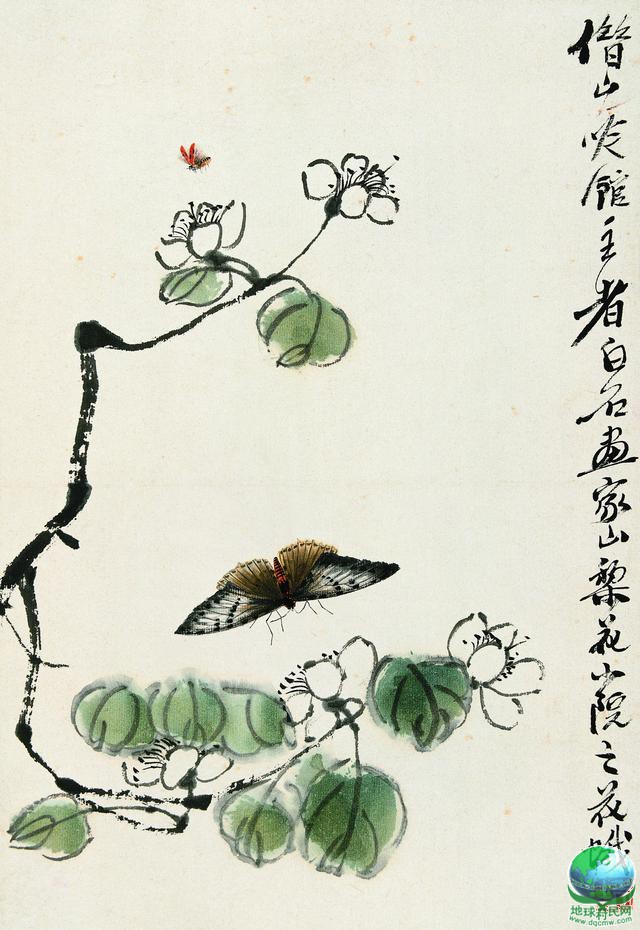 借山吟馆主者白石画家山梨花小院之花
地球村民网
www.dqcmw.com